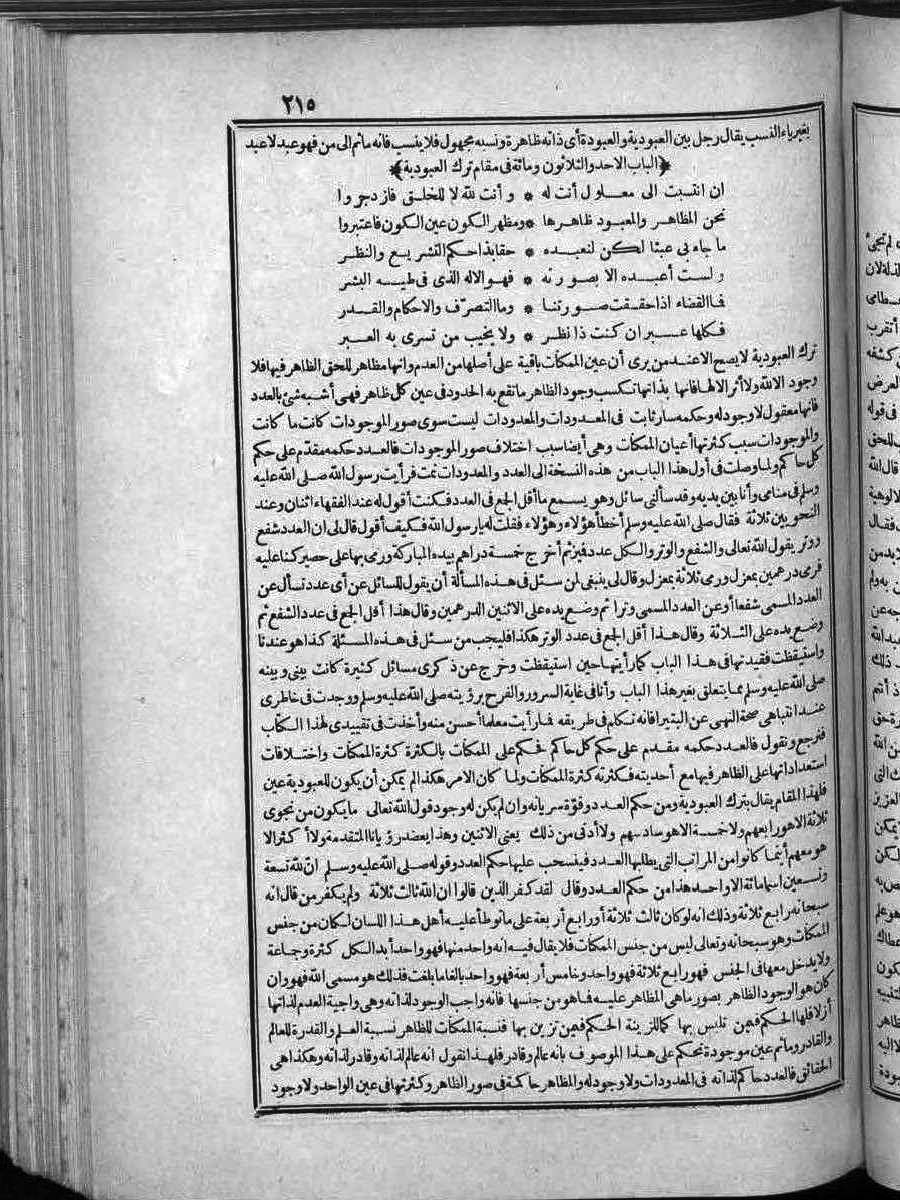 ٢١٥
بغير ياء النسب يقال رجل بين العبودية والعبودة أى ذاته ظاهرة ونسبه مجهول فلا ينسب فانه ماثم الى من فهو عبد لا عبد
﴿الباب الاحد والثلاثون ومائة فى مقام ترك العبودية﴾
ان انتسبت الى معلول أنت له * وأنت لله لا للخلق فازدجروا
نحن المظاهر والمعبود ظاهرها * ومظهر الكون عين الكون فاعتبروا
ما جاء بى عبثا لكن لنعبده * حقا بذا حكم التشريع والنظر
ولست أعبده الا بصورته * فهو الاله الذى فى طيه البشر
فما القضاء اذا حققت صورتنا * وما التصرف والاحكام والقدر
فكلها عبر ان كنت ذا نظر * ولا يخيب من تسرى به العبر
ترك العبودية لا يصح الا عند من يرى أن عين الممكنات باقية على أصلها من العدم وانها مظاهر للحق الظاهر فيها فلا
وجود الا لله ولا أثر الا لها فانها بذاتها تكسب وجود الظاهر ما تقع به الحدود فى عين كل ظاهر فهى أشبه شئ بالعدد
فانها معقول لا وجود له وحكمه سار ثابت فى المعدودات والمعدودات ليست سوى صور الموجودات كانت ما كانت
والموجودات سبب كثرتها أعيان الممكنات وهى أيضا سبب اختلاف صور الموجودات فالعدد حكمه مقدم على حكم
كل حاكم ولما وصلت فى أول هذا الباب من هذه النسخة الى العدد والمعدودات نمت فرأيت رسول الله صلى الله عليه
وسلم فى منامى وأنا بين يديه وقد سألنى سائل وهو يسمع ما أقل الجمع فى العدد فكنت أقول له عند الفقهاء اثنان وعند
النحويين ثلاثة فقال صلى الله عليه وسلم أخطأ هؤلاء وهؤلاء فقلت له يا رسول الله فكيف أقول قال لى ان العدد شفع
ووتر يقول الله تعالى والشفع والوتر والكل عدد فميز ثم أخرج خمسة دراهم بيده المباركة ورمى بها على حصير كنا عليه
فرمى درهمين بمعزل ورمى ثلاثة بمعزل وقال لى ينبغى لمن سئل فى هذه المسألة أن يقول للسائل عن أى عدد تسأل عن
العدد المسمى شفعا أو عن العدد المسمى وترا ثم وضع يده على الاثنين الدرهمين وقال هذا أقل الجمع فى عدد الشفع ثم
وضع يده على الثلاثة وقال هذا أقل الجمع فى عدد الوتر هكذا فليجب من سئل فى هذه المسئلة كذا هو عندنا
واستيقظت فقيدتها فى هذا الباب كما رأيتها حين استيقظت وخرج عن ذكرى مسائل كثيرة كانت بينى وبينه
صلى الله عليه وسلم مما يتعلق بغير هذا الباب وأنا فى غاية السرور والفرح برؤيته صلى الله عليه وسلم ووجدت فى خاطرى
عند انتباهى صحة النهى عن البتيراء فانه تكلم فى طريقه فما رأيت معلما أحسن منه وأخذت فى تقييدى لهذا الكتاب
فنرجع ونقول فالعدد حكمه مقدم على حكم كل حاكم فحكم على الممكنات بالكثرة كثرة الممكنات واختلافات
استعداداتها على الظاهر فيها مع أحديته فكثرته كثرة الممكنات ولما كان الامر هكذا لم يمكن أن يكون للعبودية عين
فلهذا المقام يقال بترك العبودية ومن حكم العدد وقوة سريانه وان لم يكن له وجود قول الله تعالى ما يكون من نجوى
ثلاثة الا هو رابعهم ولا خمسة الا هو سادسهم ولا أدنى من ذلك يعنى الاثنين وهذا يعضد رؤيانا المتقدمة ولا أكثر الا
هو معهم أينما كانوا من المراتب التى يطلبها العدد فينسحب عليها حكم العدد وقوله صلى الله عليه وسلم ان لله تسعة
وتسعين اسما مائة الا واحد هذا من حكم العدد وقال لقد كفر الذين قالوا ان الله ثالث ثلاثة ولم يكفر من قال انه
سبحانه رابع ثلاثة وذلك انه لو كان ثالث ثلاثة أو رابع أربعة على ما توطأ عليه أهل هذا اللسان لكان من جنس
الممكنات وهو سبحانه وتعالى ليس من جنس الممكنات فلا يقال فيه انه واحد منها فهو واحد أبدا لكل كثرة وجماعة
ولا يدخل معها فى الجنس فهو رابع ثلاثة فهو واحد وخامس أربعة فهو واحد بالغا ما بلغت فذلك هو مسمى الله فهو وان
كان هو الوجود الظاهر بصور ما هى المظاهر عليه فما هو من جنسها فانه واجب الوجود لذاته وهى واجبة العدم لذاتها
أزلا فلها الحكم فيمن تلبس بها كما للزينة الحكم فيمن تزين بها فنسبة الممكنات للظاهر نسبة العلم والقدرة للعالم
والقادر وما ثم عين موجودة تحكم على هذا الموصوف بانه عالم وقادر فلهذا نقول انه عالم لذاته وقادر لذاته وهكذا هى
الحقائق فالعدد حاكم لذاته فى المعدودات ولا وجود له والمظاهر حاكمة فى صور الظاهر وكثرتها فى عين الواحد ولا وجود